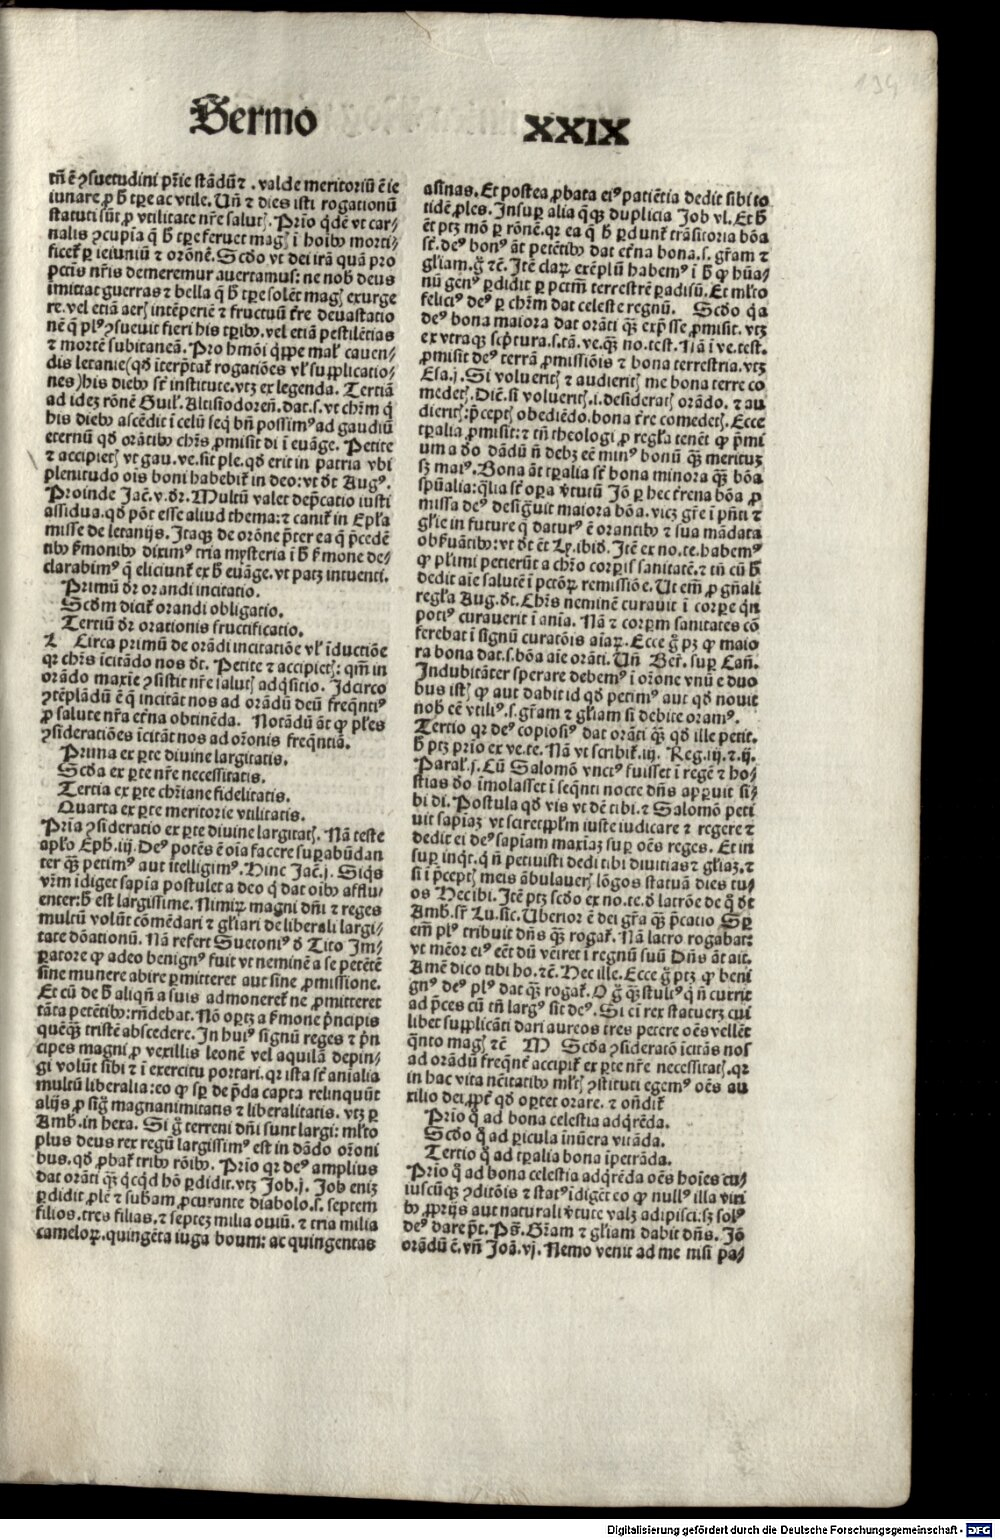 Sermo XXIX
tñ ē ꝯsuetudini pr̄ie stādū ⁊. valde meritoriū ē ie
iunare ꝓ h̄ tꝑe ac vtile. Uñ ⁊ dies isti rogationū
statuti sūt ꝓ vtilitate nr̄e saluť. Prīo q̇dē vt car⸗
nalis ꝯcupīa q̄ h̄ tꝑe feruet mať ī hoīb⁹ morti⸗
ficet̄ ꝑ ieiuniū ⁊ orōnē. Scd̄o vt dei irā quā pro
pctīs nr̄is demeremur auertamus: ne nob̄ deus
imittat guerras ⁊ bella q̄ h̄ tꝑe solēt mať exurge
re. vel etiā aerꝭ intēperiē ⁊ fructuū tr̄e deuastatio
nē q̄ pl⁹ ꝯsueuit fieri his tꝑib⁹. vel etiā pestilētias
⁊ mortē subitaneā. Pro hmōi q̇ꝑpe mal̄ cauen⸗
dis letanie (qđ īterp̄tat̄ rogatiōes vl̄ supplicatio⸗
nes) his dieb⁹ sr̄ institute. vtꝫ ex legenda. Tertiā
ad ideꝫ rōnē Guil̄. Altisiodoreñ. dat. s. vt chr̄m q̇
his dieb⁹ ascēdit ī celū seq̇ bñ possim⁹ ad gaudiū
eternū qđ orātib⁹ chr̄s ꝓmisit di. ī euāge. Petite
⁊ accipietꝭ vt gau. ve. sit ple. qđ erit in patria vbi
plenitudo oīs boni habebit̄ in deo: vt dt̄ Aug⁹.
Proinde Jac̄. v. dr̄. Multū valet dep̄catio iusti
assidua. qđ pōt esse aliud thema: ⁊ canit̄ in Epl̄a
misse de letanijs. Itaqꝫ de orōne p̄ter ea q̄ p̄cedē
tib⁹ s̄monib⁹ dixim⁹ tria mysteria ī h̄ s̄mone de⸗
clarabim⁹ q̄ eliciunt̄ ex h̄ euāge. vt patꝫ intuenti.
Primū dr̄ orandi incitatio.
Scd̄m dicit̄ orandi obligatio.
Tertiū dr̄ orationis fructificatio.
L Circa primū de orādi incitatiōe vl̄ īductiōe
qꝛ chr̄s īcitādo nos dt̄. Petite ⁊ accipietꝭ: qm̄ in
orādo maxīe ꝯsistit nr̄e salutꝭ adq̇sitio. Idcirco
ꝯtēplādū ē q̄ incitāt nos ad orādū deū freq̄nti⁹
ꝓ salute nr̄a etn̄a obtinēda. Notādū āt ꝙ pl̄es
ꝯsideratiōes īcitāt nos ad orōnis freq̄ntiā.
Prima ex ꝑte diuine largitatis.
Scd̄a ex ꝑte nr̄e necessitatis.
Tertia ex ꝑte chr̄iane fidelitatis.
Quarta ex ꝑte meritorie vtilitatis.
Prīa ꝯsideratio ex ꝑte diuine largitatꝭ. Nā teste
apl̄o Eph̄. iij. De⁹ potēs ē oīa facere suꝑabūdan
ter q̄ꝫ petim⁹ aut ītelligim⁹. Hinc Jac̄. j. Siq̇s
vr̄m īdiget sapīa postulet a deo q̇ dat oīb⁹ afflu⸗
enter: h̄ est largissime. Nimiꝝ magni dñi ⁊ reges
multū volūt cōmēdari ⁊ gl̄iari de liberali largi⸗
tate dōationū. Nā refert Suetoni⁹ d̄ Tito Im⸗
ꝑatore ꝙ adeo benign⁹ fuit vt neminē a se petētē
sine munere abire ꝑmitteret aut sine ꝓmissione.
Et cū de h̄ aliqñ a suis admoneret̄ ne ꝓmitteret
tāta petētib⁹: rn̄debat. Nō optꝫ a s̄mone p̄ncipis
quēq̄ꝫ tristē abscedere. In hui⁹ signū reges ⁊ p̄n
cipes magni ꝓ vexillis leonē vel aquilā depin⸗
gi volūt sibi ⁊ ī exercitu portari. qꝛ ista sr̄ aīalia
multū liberalia: eo ꝙ sꝑ de p̄da capta relinquūt
alijs ꝓ sigꝭ magnanimitatis ⁊ liberalitatis. vtꝫ ꝑ
Amb̄. in hexa. Si g̊ terreni dñi sunt largi: ml̄to
plus deus rex regū largissim⁹ est in dādo orōni
bus. qđ ꝓbat̄ trib⁹ rōib⁹. Prīo qꝛ de⁹ amplius
dat orāti q̄ꝫ q̇cq̇d hō ꝑdidit. vtꝫ Job. j. Job eniꝫ
ꝑdidit ꝓlē ⁊ subam̄ ꝓcurante diabolo. s. septem
filios. tres filias. ⁊ septeꝫ milia ouiū. ⁊ tria milia
cameloꝝ. quingēta iuga boum: ac quingentas
asinas. Et postea ꝓbata ei⁹ patiētia dedit sibi to
tidē ꝓles. Insuꝑ alia q̄qꝫ duplicia Job vl. Et h̄
ēt ptꝫ mō ꝑ rōnē. qꝛ ea q̄ h̄ ꝑdunt̄ trāsitoria bōa
sr̄. de⁹ bon⁹ āt petētib⁹ dat etn̄a bona. s. gr̄am ⁊
gl̄iam. g̊ ⁊c̄. Itē claꝝ exēplū habem⁹ ī h̄ ꝙ hūa⸗
nū gen⁹ ꝑdidit ꝑ pctm̄ terrestrē ꝑadisū. Et ml̄to
felici⁹ de⁹ ꝑ chr̄m dat celeste regnū. Scd̄o q̇a
de⁹ bona maiora dat orāti q̄ꝫ exp̄sse ꝓmisit. vtꝫ
ex vtraqꝫ scp̄tura. s. tā. ve. q̄ꝫ no. test. Nā ī ve. test.
ꝓmisit de⁹ terrā ꝓmissiōis ⁊ bona terrestria. vtꝫ
Esa. j. Si volueritꝭ ⁊ audieritꝭ me bona terre co
medetꝭ. Diē. si volueritꝭ. i. desideratꝭ orādo. ⁊ au
dieritꝭ: p̄ceptꝭ obediēdo. bona tr̄re comedetꝭ. Ecce
tꝑalia ꝓmisit: ⁊ tñ theologi ꝓ regl̄a tenēt ꝙ p̄mi
um a do dādū ñ debꝫ eē min⁹ bonū q̄ꝫ merituꝫ
sꝫ mai⁹. Bona āt tꝑalia sr̄ bona minora q̄ꝫ bōa
spūalia: q̄lia sr̄ oꝑa v̇tutū Jō ꝑ hec tr̄rena bōa ꝓ
missa de⁹ desig̊uit maiora bōa. vicꝫ gr̄e ī p̄nti ⁊
gl̄ie in future q̄ datur⁹ ē orantib⁹ ⁊ sua mādata
obs̄uātib⁹: vt dt̄ ēt Ly. ibid̄. Itē ex no. te. habem⁹
ꝙ pl̄imi petierūt a chr̄o corꝑis sanitatē. ⁊ tñ cū h̄
dedit aīe salutē ī pctōꝝ remissiōe. Ut em̄ ꝓ gn̄ali
regl̄a Aug. dt̄. Chr̄s neminē curauit ī corꝑe q̇n
poti⁹ curauerit ī aīa. Nā ⁊ corꝑm sanitates cō
ferebat ī signū curatōis aīaꝝ. Ecce g̊ pꝫ ꝙ maio
ra bona dat. s. bōa aīe orāti. Uñ Ber̄. suꝑ Cañ.
Indubitāter sperare debem⁹ ī orōne vnū e duo
bus istꝭ ꝙ aut dabit id qđ petim⁹ aut qđ nouit
nob̄ eē vtili⁹. s. gr̄am ⁊ gl̄iam si debite oram⁹.
Tertio qꝛ de⁹ copiosi⁹ dat orāti q̄ꝫ qđ ille petit.
h̄ ptꝫ prīo ex ve. te. Nā vt scribit̄. iij. Reg. iij. ⁊. ij.
Paral̄. j. Cū Salomō vnct⁹ fuisset ī regē ⁊ ho⸗
stias do īmolasset ī seq̄nti nocte dñs apꝑuit si⸗
bi di. Postula qđ vis vt dē tibi. ⁊ Salomō peti
uit sapiaꝫ vt sciret ppl̄m iuste iudicare ⁊ regere ⁊
dedit ei de⁹ sapiam maxiaꝫ suꝑ oēs reges. Et in
suꝑ inq̇t. q̄ ñ petiuisti dedi tibi diuitias ⁊ gl̄iaꝫ. ⁊
si ī p̄ceptꝭ meis ābulauerꝭ lōgos statuā dies tu⸗
os Hec ibi. Itē ptꝫ scd̄o ex no. te. d̄ latrōe de q̇ dt̄
Amb. sr̄ Lu. sic. Uberior ē dei gr̄a q̄ꝫ p̄catio Sꝑ
em̄ pl⁹ tribuit dñs q̄ꝫ rogat̄. Nā latro rogabat:
vt mēor ei⁹ eēt dū vēiret ī regnū suū Dñs āt ait.
Amē dico tibi ho. ⁊c̄. Hec ille. Ecce g̊ ptꝫ ꝙ beni
gn⁹ de⁹ pl⁹ dat q̄ꝫ rogat̄. O g̊ q̄ꝫ stult⁹ q̇ ñ currit
ad p̄ces cū tñ larg⁹ sit de⁹. Si eī rex statueꝫ cui
libet supplicāti dari aureos tres petere oēs vellēt
q̄nto mať ⁊c̄ M Scd̄a ꝯsideratō īcitās nos
ad orādū freq̄nt̄ accipit̄ ex ꝑte nr̄e necessitatꝭ. qꝛ
in hac vita nēitatib⁹ ml̄tꝭ ꝯstituti egem⁹ oēs au
xilio dei ꝓpt̄ qđ oꝑtet orare. ⁊ oñdit̄
Prīo q̊ ad bona celestia adq̇rēda.
Scd̄o q̊ ad ꝑicula īnūera vitāda.
Tertio q̊ ad tꝑalia bona īpetrāda.
Prīo q̊ ad bona celestia adq̇rēda oēs hoīes cu⸗
iuscūqꝫ ꝯditōis ⁊ stat⁹ īdigēt eo ꝙ null⁹ illa viri
b⁹ ꝓprijs aut naturali v̇tute valꝫ adipisci: sꝫ sol⁹
de⁹ dare pt̄. Ps̄. Gr̄am ⁊ gl̄iam dabit dñs. Jō
orādū ē. vñ Joā. vj. Nemo venit ad me nisi pa⸗
Digitalisierung gefördert durch die Deutsche Forschungsgemeinschaft - DFG